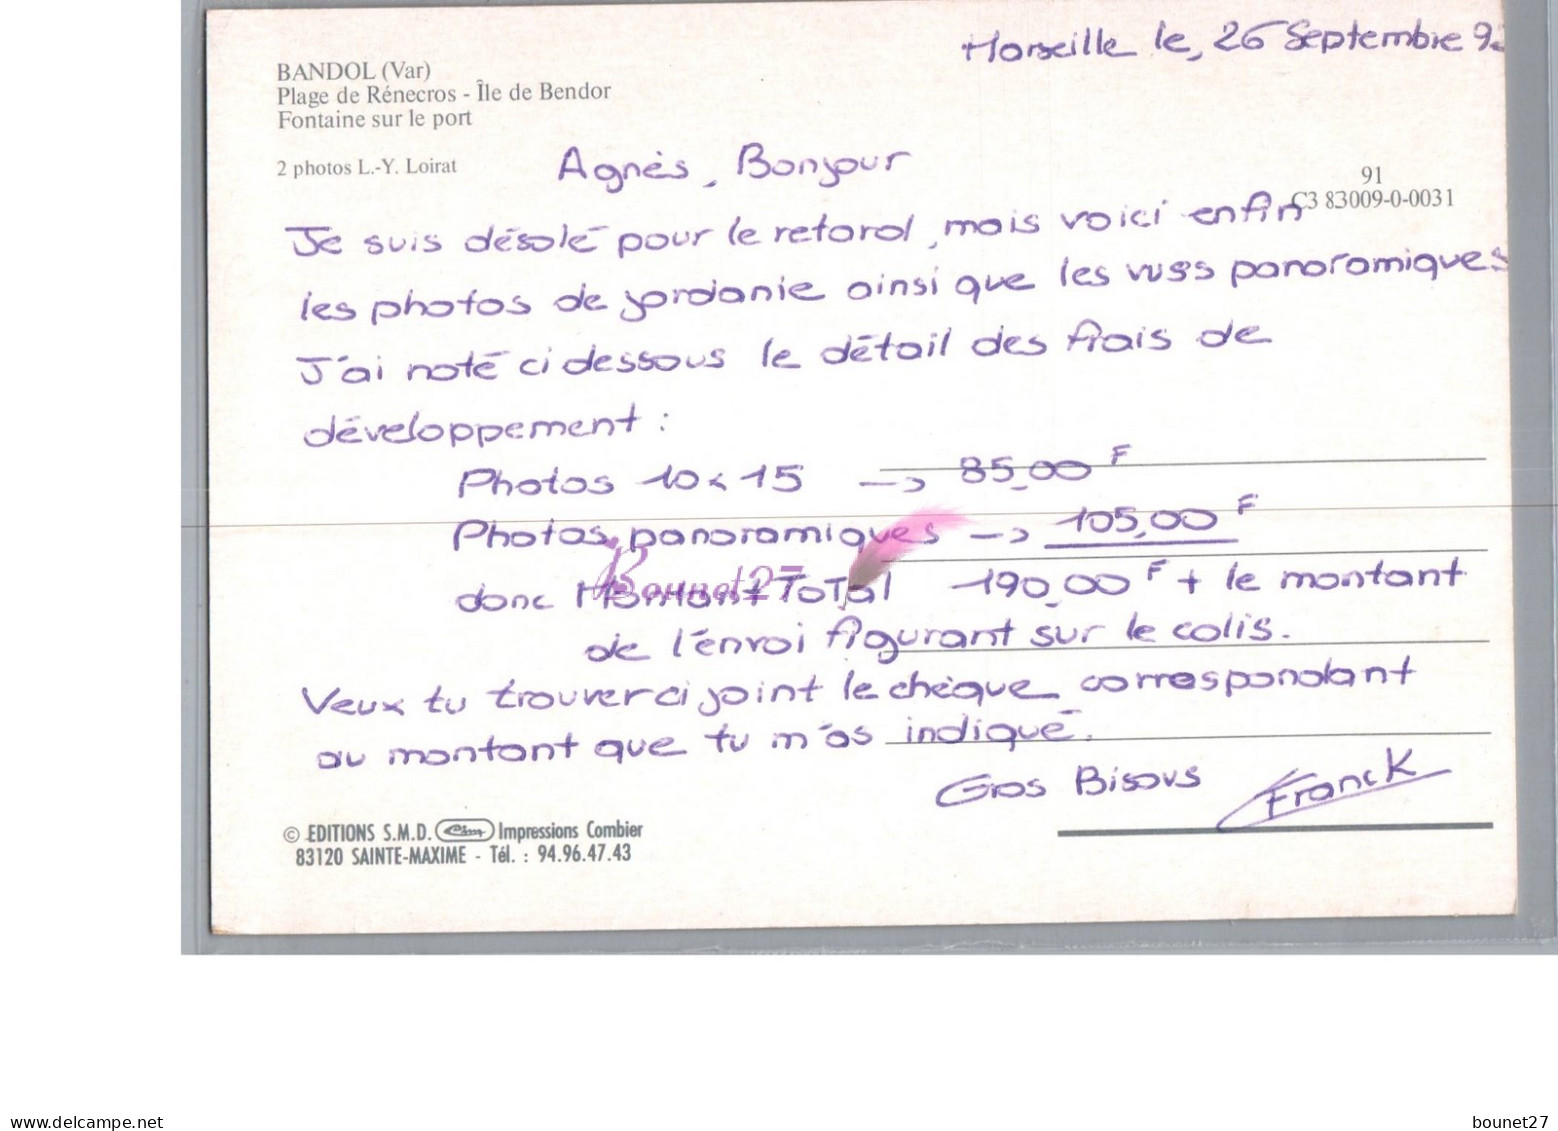 Marseille le, 26 Septembre
BANDOL (Var)
Plage de Rénecros - Île de Bendor
Fontaine sur le port
2 photos L.-Y. Loirat
91
C3 83009-0-0031
Agnès, Bonjour
Je suis désolé pour le retard, mais voici enfin
les photos de jordanie ainsi que les vues panoramiques
J'ai noté ci dessous le détail des frais de
développement :
Photos 10 x 15 -> 85,00 F
Photos panoramiques -> 105,00 F
donc Montant ToTal 190,00 F + le montant
de l'envoi figurant sur le colis.
Veux tu trouver ci joint le chèque correspondant
au montant que tu m'as indiqué.
Gros Bisous Franck
© EDITIONS S.M.D. Cim Impressions Combier
83120 SAINTE-MAXIME - Tél. : 94.96.47.43
Bounet27
www.delcampe.net
bounet27